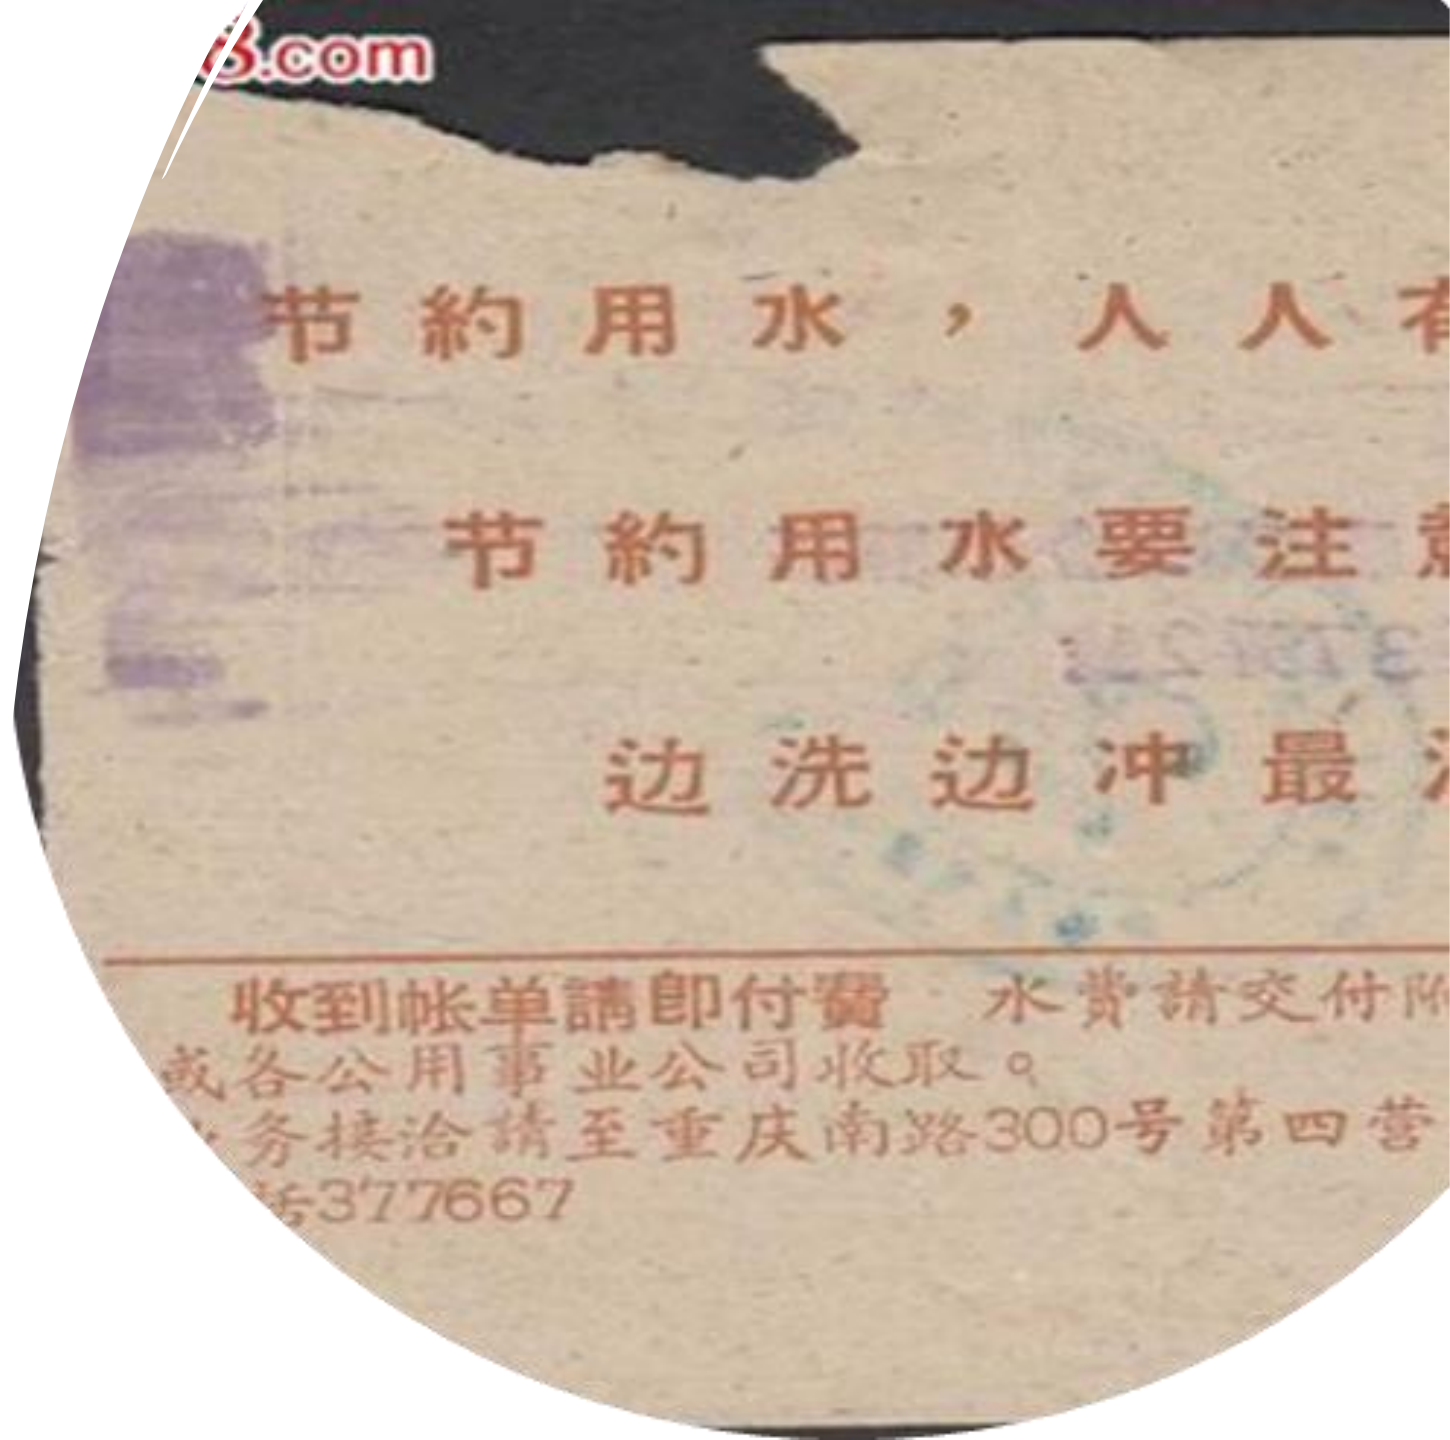 8.com
节約用水，人人有
节約用水要注意
边洗边冲最
收到帐单請即付費 水費請交付附
或各公用事业公司收取。
务接洽請至重庆南路300号第四营
话377667